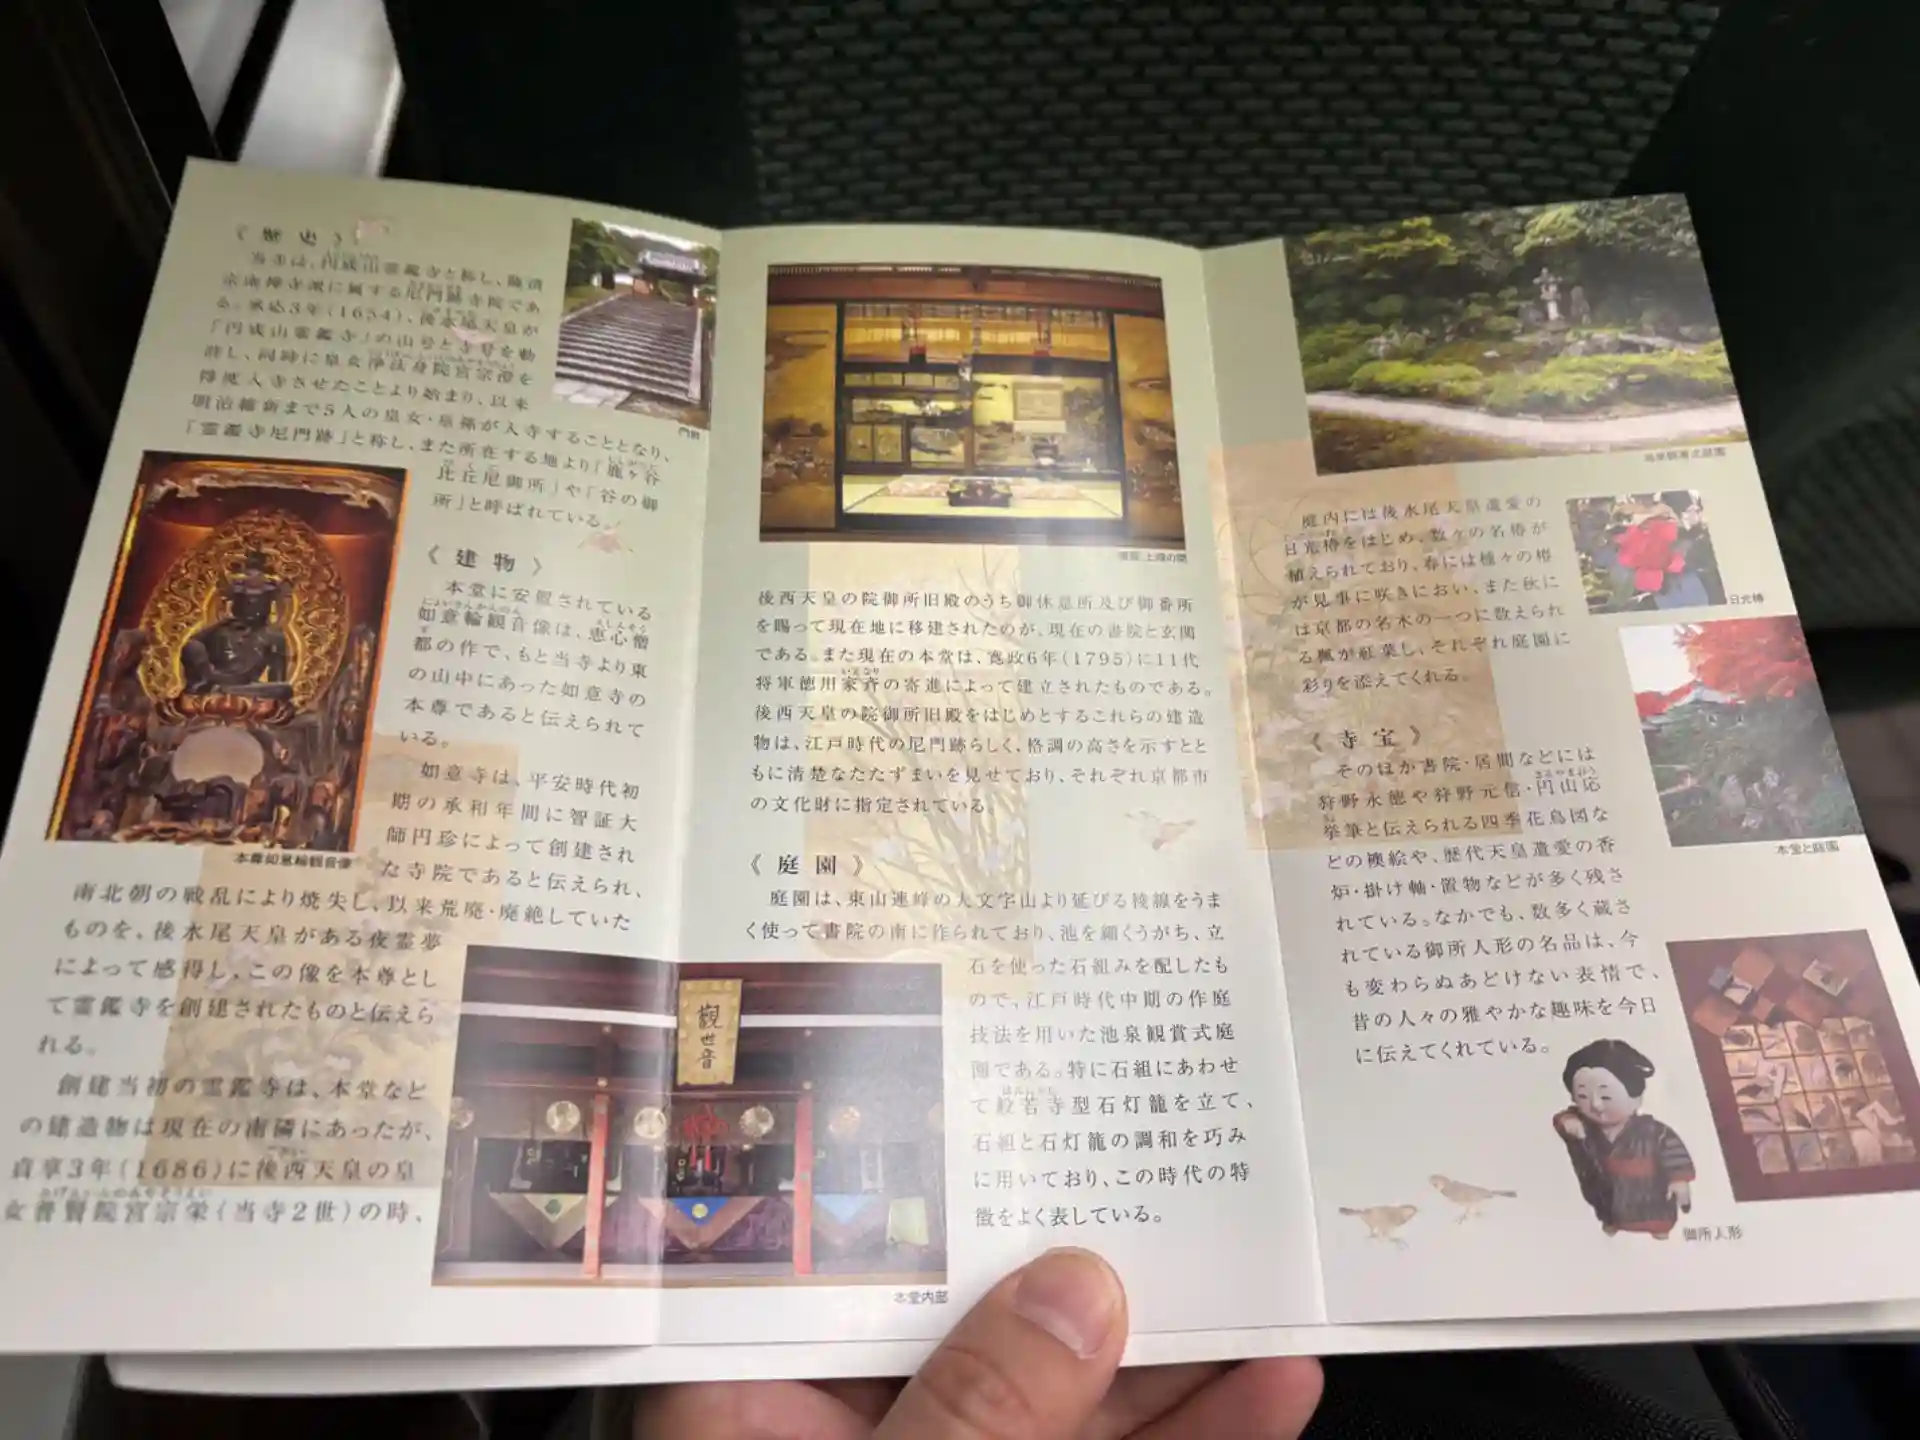 《歴史》
当寺は、円成山霊鑑寺と称し、臨済
宗南禅寺派に属する尼門跡寺院であ
る。承応3年(1654)、後水尾天皇が
「円成山霊鑑寺」の山号と寺号を勅
許し、同時に皇女浄法身院宮宗澄を
得度入寺させたことより始まり、以来
明治維新まで5人の皇女・皇孫が入寺することとなり、
「霊鑑寺尼門跡」と称し、また所在する地より「鹿ヶ谷
比丘尼御所」や「谷の御
所」と呼ばれている。
《建物》
本堂に安置されている
如意輪観音像は、恵心僧
都の作で、もと当寺より東
の山中にあった如意寺の
本尊であると伝えられて
いる。
如意寺は、平安時代初
期の承和年間に智証大
師円珍によって創建され
た寺院であると伝えられ、
本尊如意輪観音像
南北朝の戦乱により焼失し、以来荒廃・廃絶していた
ものを、後水尾天皇がある夜霊夢
によって感得し、この像を本尊とし
て霊鑑寺を創建されたものと伝えら
れる。
創建当初の霊鑑寺は、本堂など
の建造物は現在の南隣にあったが、
貞享3年(1686)に後西天皇の皇
女普賢院宮宗栄(当寺2世)の時、
上段の間
後西天皇の院御所旧殿のうち御休息所及び御番所
を賜って現在地に移建されたのが、現在の書院と玄関
である。また現在の本堂は、寛政6年(1795)に11代
将軍徳川家斉の寄進によって建立されたものである。
後西天皇の院御所旧殿をはじめとするこれらの建造
物は、江戸時代の尼門跡らしく、格調の高さを示すとと
もに清楚なたたずまいを見せており、それぞれ京都市
の文化財に指定されている。
《庭園》
庭園は、東山連峰の大文字山より延びる稜線をうま
く使って書院の南に作られており、池を細くうがち、立
石を使った石組みを配したも
ので、江戸時代中期の作庭
技法を用いた池泉観賞式庭
園である。特に石組にあわせ
て般若寺型石灯籠を立て、
石組と石灯籠の調和を巧み
に用いており、この時代の特
徴をよく表している。
觀世音
本堂内部
池泉観賞式庭園
庭内には後水尾天皇遺愛の
日光椿をはじめ、数ヶの名椿が
植えられており、春には種々の椿
が見事に咲きにおい、また秋に
は京都の名木の一つに数えられ
る楓が紅葉し、それぞれ庭園に
彩りを添えてくれる。
日光椿
本堂と庭園
《寺宝》
そのほか書院・居間などには
狩野永徳や狩野元信・円山応
挙筆と伝えられる四季花鳥図な
どの襖絵や、歴代天皇遺愛の香
炉・掛け軸・置物などが多く残さ
れている。なかでも、数多く蔵さ
れている御所人形の名品は、今
も変わらぬあどけない表情で、
昔の人々の雅やかな趣味を今日
に伝えてくれている。
御所人形